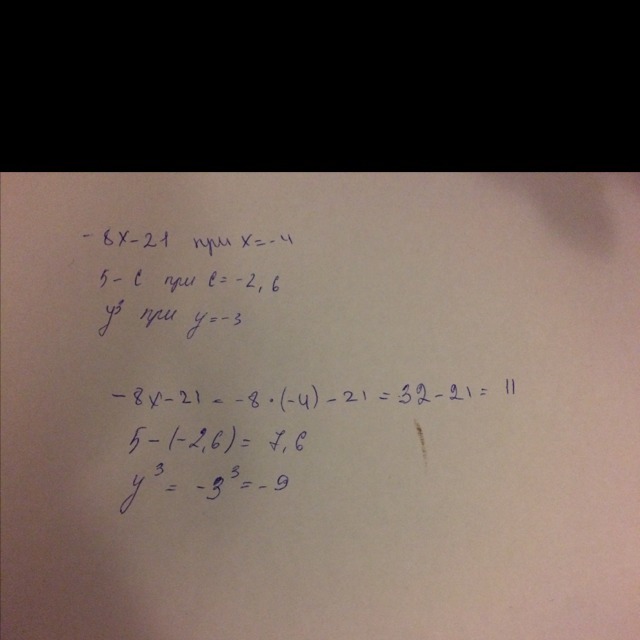 -8x-21 при x=-4
5-c при c=-2,6
y³ при y=-3
-8x-21 = -8·(-4)-21 = 32-21 = 11
5-(-2,6) = 7,6
y³ = -3³ = -9